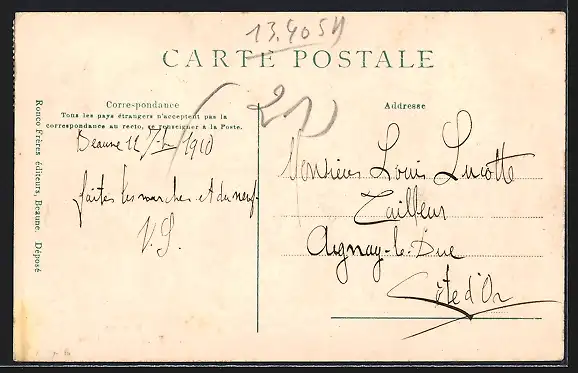 13.405H
CARTE POSTALE
Correspondance
Tous les pays étrangers n'acceptent pas la
correspondance au recto, se renseigner à la Poste.
Beaune 1910
faites les marches et du neuf.
V.S.
Adresse
Monsieur Louis Lucotte
Tailleur
Aignay-le-Duc
Côte d'Or
Ronco Frères éditeurs, Beaune. Déposé